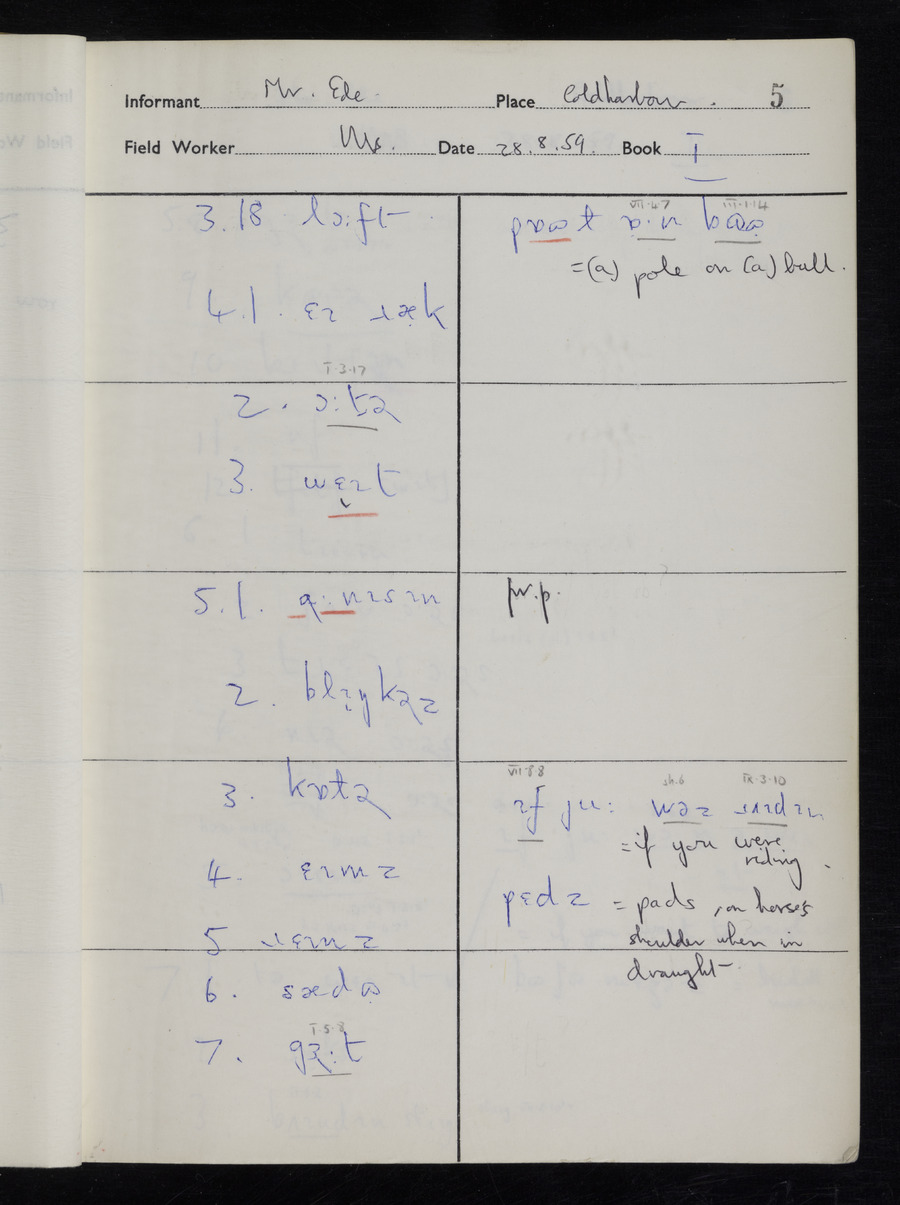 Informant Mr. Ede. Place Coldharbour. 5
Field Worker Date 28.8.59. Book I
3.18 lɔ:ft
4.1. ɛɪ ɹæk
I.3.17
2. ɔ:tə
3. wɛɪt
5.1.
2.
3. kɒtə
4. ɛɪmz
5 ɹɛɪnz
6. sædɷ
I.5.8
7. gɜ:t
VII.4.7 III.1.14
=(a) pole on (a) ball.
pr.p.
VII.8.8 sh.6 IX.3.10
ɪf ju: wəz
=if you were
riding.
pɛdz = pads, on horse's
shoulder when in
draught.